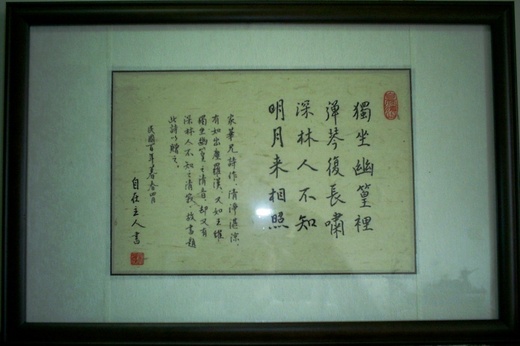 獨坐幽篁裡
弹琴復長嘯
深林人不知
明月来相照
家華兄詩作，清淨湛涼，
有如出塵羅漢，又如王維
獨坐幽篁之清音，卻又有
深林人不知之清寂，故書題
此詩以贈之。
民國百年暮春四月
自在主人書